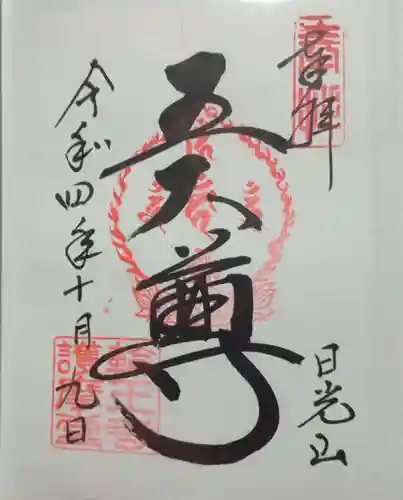 奉拝
日光山
五大尊
令和四年十月九日